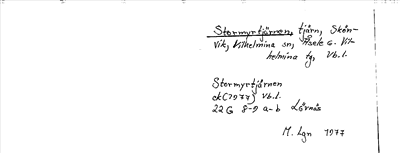 Stormyrtjärnen, tjärn, Skån-
vik, Vilhelmina sn, Åsele o. Vil-
helmina tg, Vb.l.
Stormyrtjärnen
ek (1977) Vb.l.
22G 8-9 a-b Lövnäs
M. Lgn 1977